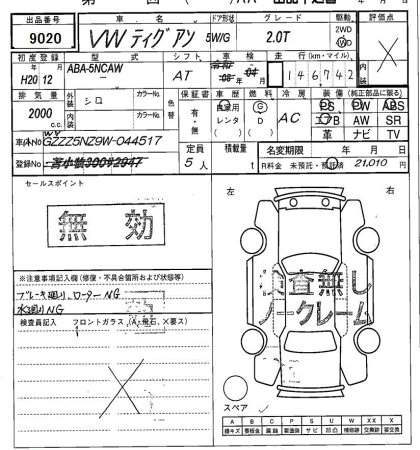 出品番号 車名 ドア形状 グレード 駆動 評価点
9020 VW ティグアン 5W/G 2.0T 2WD
WD
初度登録 型式 シフト 車検 走行(km・マイル)
年 月 ABA-5NCAW AT 146742
H20 12
排気量 外装 シロ カラーNo. 色替 保証書 車歴 燃料 冷房 装備(純正部品に限る)
2000 cc 内装 カラーNo. 有・無 自家用 G AC PS PW ABS
レンタ D エアB AW SR
革 ナビ TV
車体No WVGZZZ5NZ9W-044517
定員 積載量 名変期限 年 月 日
登録No 5人 t R料金 未預託・預託済 21,010 円
セールスポイント
無効
左 右
検査無し
ノークレーム
※注意事項記入欄(修復・不具合箇所および状態等)
ブレーキ廻り、ローターNG
水廻りNG
検査員記入 フロントガラス(A、飛石、X要ス)
スペア
A B C P S U W X XX
線キズ 要板金 腐蝕 要塗装 サビ 凹凸 補修跡 交換跡 要交換